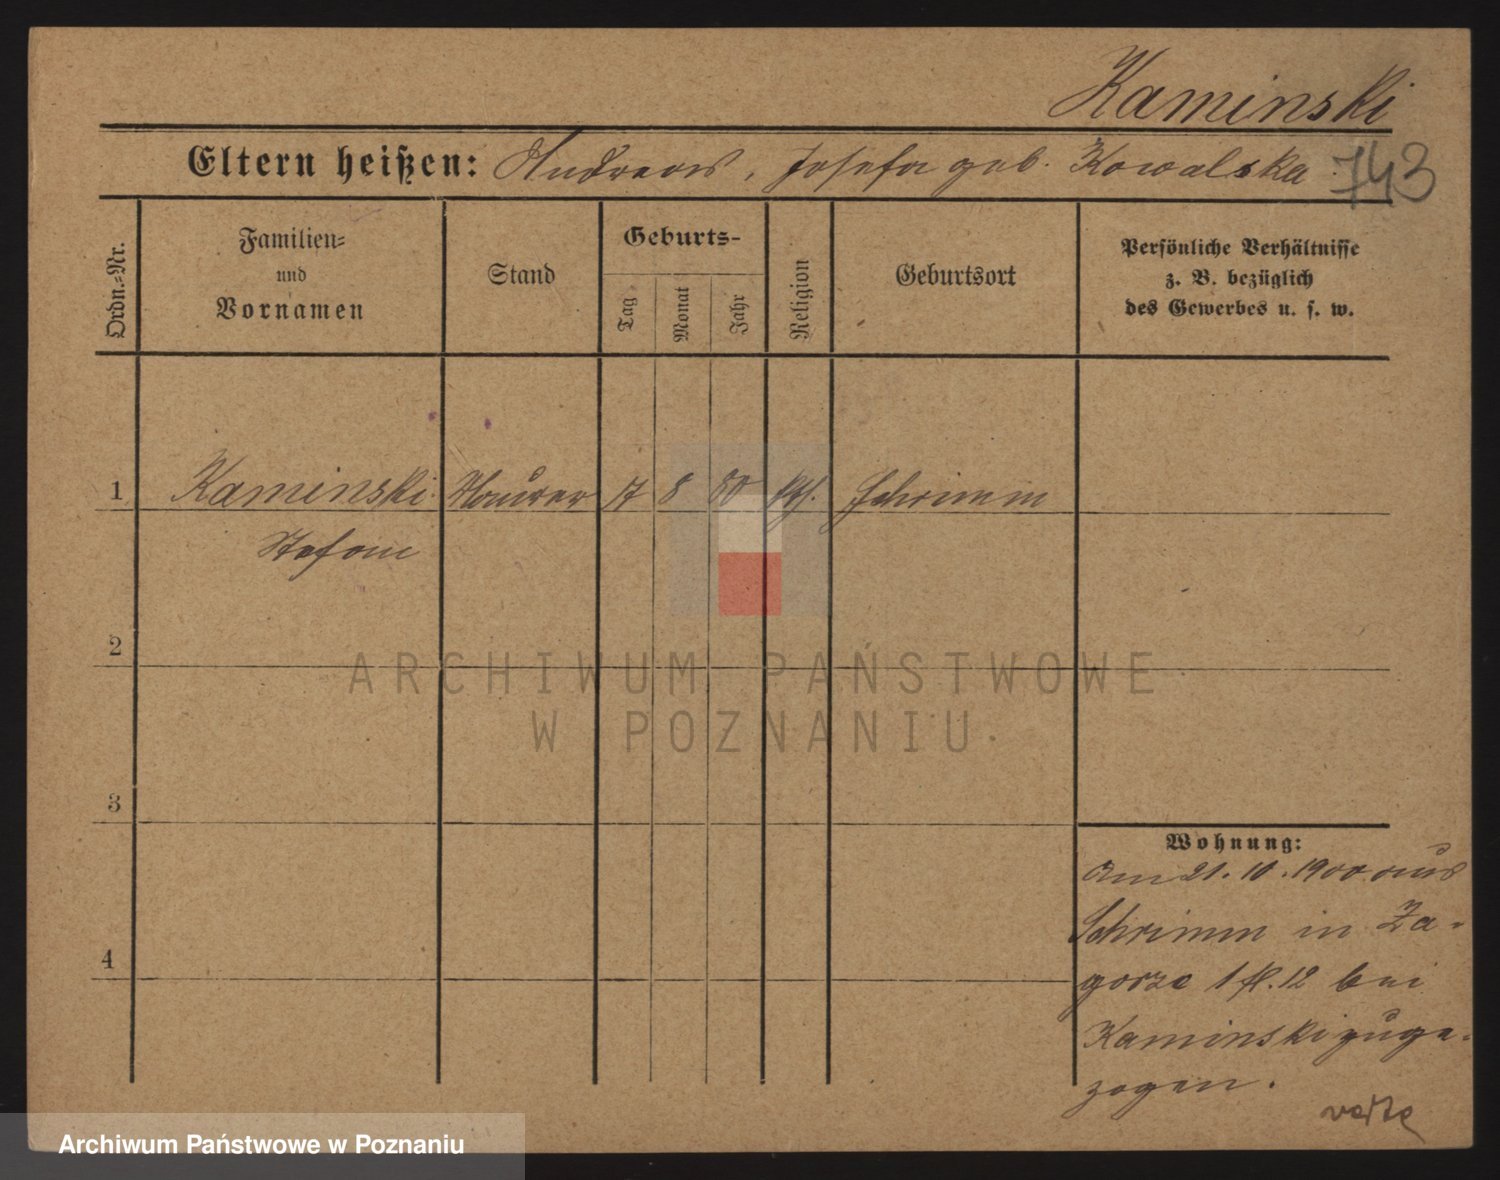 Kaminski
Eltern heißen: Andreas, Josefa geb. Kowalska. 743
Ordn.-Nr.
Familien-
und
Vornamen
Stand
Geburts-
Tag
Monat
Jahr
Religion
Geburtsort
Persönliche Verhältnisse
z. B. bezüglich
des Gewerbes u. s. w.
1 Kaminski Maurer 17 8 80 kth. Schrimm
Stefan
2
3
4
Wohnung:
Am 21. 10. 1900 aus
Schrimm in Za-
gorze 1 pt. 12 bei
Kaminski zuge-
zogen.
verte
ARCHIWUM PAŃSTWOWE
W POZNANIU
Archiwum Państwowe w Poznaniu